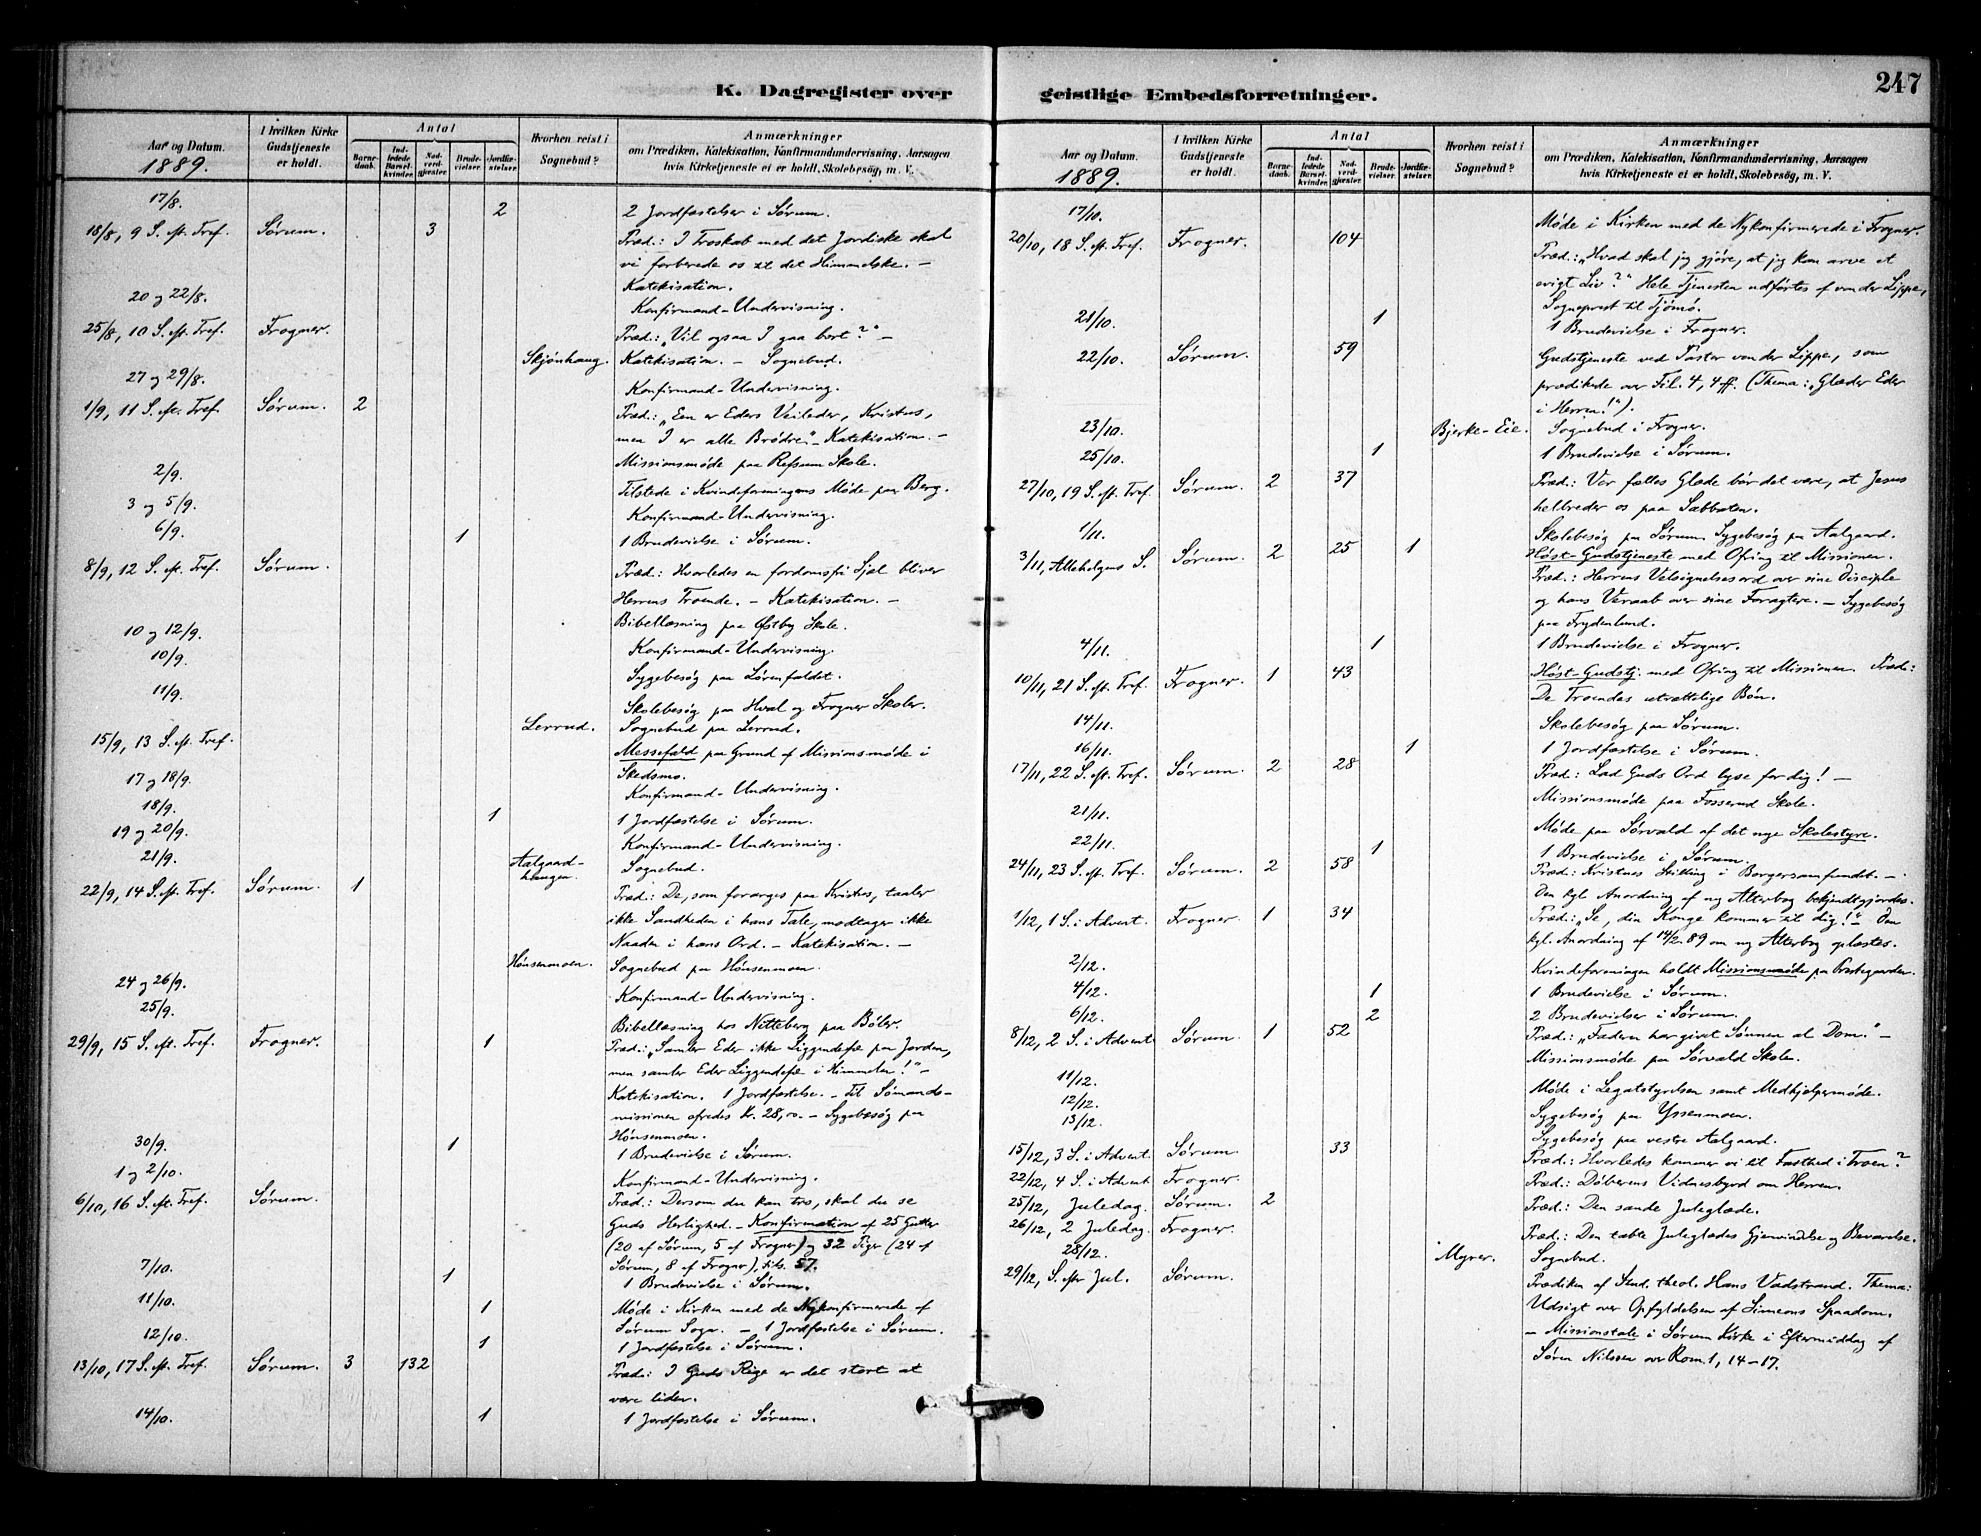 247
K. Dagregister over
Aar og Datum. 1889.
I hvilken Kirke Gudstjeneste er holdt.
Antal
Barnedaab.
Indledede Barselkvinder.
Nadverdgjæster.
Brudevielser.
Jordfæstelser.
Hvorhen reist i Sognebud?
Anmærkninger
om Prædiken, Katekisation, Konfirmandundervisning, Aarsagen
hvis Kirketjeneste ei er holdt, Skolebesøg, m. V.
17/8. 2 2 Jordfæstelser i Sørum.
18/8, 9 S. eft. Tref. Sørum. 3 Præd.: I Troskab med det Jordiske skal
vi forberede os til det Himmelske. –
Katekisation.
20 og 22/8. Konfirmand-Undervisning.
25/8, 10 S. eft. Tref. Frogner. Præd.: „Vil ogsaa I gaa bort?“ –
Skjønhaug. Katekisation. – Sognebud.
27 og 29/8. Konfirmand-Undervisning.
1/9, 11 S. eft. Tref. Sørum. 2 Præd.: „Een er Eders Veileder, Kristus,
men I er alle Brødre.“ – Katekisation. –
Missionsmøde paa Refsum Skole.
2/9. Tilstede i Kvindeforeningens Møde paa Berg.
3 og 5/9. Konfirmand-Undervisning.
6/9. 1 1 Brudevielse i Sørum.
8/9, 12 S. eft. Tref. Sørum. Præd.: Hvorledes en fordomsfri Sjæl bliver
Herrens Troende. – Katekisation. –
Bibellæsning paa Østby Skole.
10 og 12/9. Konfirmand-Undervisning.
10/9. Sygebesøg paa Lørenfaldet.
11/9. Skolebesøg paa Hval og Frogner Skoler.
Lerrud. Sognebud paa Lerrud.
15/9, 13 S. eft. Tref. Messefald paa Grund af Missionsmøde i
Skedsmo.
17 og 18/9. Konfirmand-Undervisning.
18/9. 1 1 Jordfæstelse i Sørum.
19 og 20/9. Konfirmand-Undervisning.
21/9. Aalgaard-haugen. Sognebud.
22/9, 14 S. eft. Tref. Sørum. 1 Præd.: De, som forarges paa Kristus, taaler
ikke Sandheden i hans Tale, modtager ikke
Naaden i hans Ord. – Katekisation. –
Hønsenmoen. Sognebud paa Hønsenmoen.
24 og 26/9. Konfirmand-Undervisning.
25/9. Bibellæsning hos Nitteberg paa Bøler.
29/9, 15 S. eft. Tref. Frogner. 1 Præd.: „Samler Eder ikke Liggendefæ paa Jorden,
men samler Eder Liggendefæ i Himmelen!“ –
Katekisation. 1 Jordfæstelse. – Til Sømands-
missionen ofredes Kr. 28,00. – Sygebesøg paa
Hønsenmoen.
30/9. 1 1 Brudevielse i Sørum.
1 og 2/10. Konfirmand-Undervisning.
6/10, 16 S. eft. Tref. Sørum. Præd.: Dersom du kan tro, skal du se
Guds Herlighed. – Konfirmation af 25 Gutter
(20 af Sørum, 5 af Frogner) og 32 Piger (24 af
Sørum, 8 af Frogner), tils. 57.
7/10. 1 1 Brudevielse i Sørum.
11/10. 1 Møde i Kirken med de Nykonfirmerede af
Sørum Sogn. – 1 Jordfæstelse i Sørum.
12/10. 1 1 Jordfæstelse i Sørum.
13/10, 17 S. eft. Tref. Sørum. 3 132 Præd.: I Guds Rige er det stort at
være liden.
14/10. 1 1 Jordfæstelse i Sørum.
geistlige Embedsforretninger.
Aar og Datum. 1889.
I hvilken Kirke Gudstjeneste er holdt.
Antal
Barnedaab.
Indledede Barselkvinder.
Nadverdgjæster.
Brudevielser.
Jordfæstelser.
Hvorhen reist i Sognebud?
Anmærkninger
om Prædiken, Katekisation, Konfirmandundervisning, Aarsagen
hvis Kirketjeneste ei er holdt, Skolebesøg, m. V.
17/10. Møde i Kirken med de Nykonfirmerede i Frogner.
20/10, 18 S. eft. Tref. Frogner. 104 Præd.: „Hvad skal jeg gjøre, at jeg kan arve et
evigt Liv?“ Hele Tjenesten udførtes af von der Lippe,
Sogneprest til Tjømø.
21/10. 1 1 Brudevielse i Frogner.
22/10. Sørum. 59 Gudstjeneste ved Pastor von der Lippe, som
prædikede over Fil. 4, 4ff. (Thema: „Glæder Eder
i Herren!“).
23/10. Bjerke-Eie. Sognebud i Frogner.
25/10. 1 1 Brudevielse i Sørum.
27/10, 19 S. eft. Tref. Sørum. 2 37 Præd.: Vor fælles Glæde bør det være, at Jesus
helbreder os paa Sabbaten.
1/11. Skolebesøg paa Sørum. Sygebesøg paa Aalgaard.
3/11, Allehelgens S. Sørum. 2 25 1 Høst-Gudstjeneste med Ofring til Missionen.
Præd.: Herrens Velsignelsesord over sine Disciple
og hans Veraab over sine Foragtere. – Sygebesøg
paa Frydenlund.
4/11. 1 1 Brudevielse i Frogner.
10/11, 21 S. eft. Tref. Frogner. 1 43 Høst-Gudstj. med Ofring til Missionen. Præd:
De Troendes utrættelige Bøn.
14/11. Skolebesøg paa Sørum.
16/11. 1 1 Jordfæstelse i Sørum.
17/11, 22 S. eft. Tref. Sørum. 2 28 Præd: Lad Guds Ord lyse for dig! –
Missionsmøde paa Fosserud Skole.
21/11. Møde paa Sørvald af det nye Skolestyre.
22/11. 1 1 Brudevielse i Sørum.
24/11, 23 S. eft. Tref. Sørum. 2 58 Præd: Kristnes Stilling i Borgersamfundet. –
Den kgl. Anordning af ny Alterbog bekjendtgjordes.
1/12, 1 S. i Advent. Frogner. 1 34 Præd: „Se, din Konge kommer til dig!“ – Den
kgl. Anordning af 14/2. 89 om ny Alterbog oplæstes.
2/12. Kvindeforeningen holdt Missionsmøde paa Prestegaarden.
4/12. 1 1 Brudevielse i Sørum.
6/12. 2 2 Brudevielser i Sørum.
8/12, 2 S. i Advent Sørum. 1 52 Præd: „Faderen har givet Sønnen al Dom.“ –
Missionsmøde paa Sørvald Skole.
11/12. Møde i Legatstyrelsen samt Medhjælpermøde.
12/12. Sygebesøg paa Yssenmoen.
13/12. Sygebesøg paa vestre Aalgaard.
15/12, 3 S. i Advent. Sørum. 33 Præd: Hvorledes kommer vi til Fasthed i Troen?
22/12, 4 S. i Advent Frogner. Præd.: Døberens Vidnesbyrd om Herren.
25/12, Juledag. Sørum. 2 Præd: Den sande Juleglæde.
26/12, 2 Juledag. Frogner. Præd: Den tabte Juleglædes Gjenvindelse og Bevarelse.
28/12. Myrer. Sognebud.
29/12, S. efter Jul. Sørum. Prædiken af Stud. theol. Hans Vadstrand. Thema:
Udsigt over Opfyldelsen af Simeons Spaadom.
– Missionstale i Sørum Kirke i Eftermiddag af
Søren Nilssen over Rom. 1, 14–17.